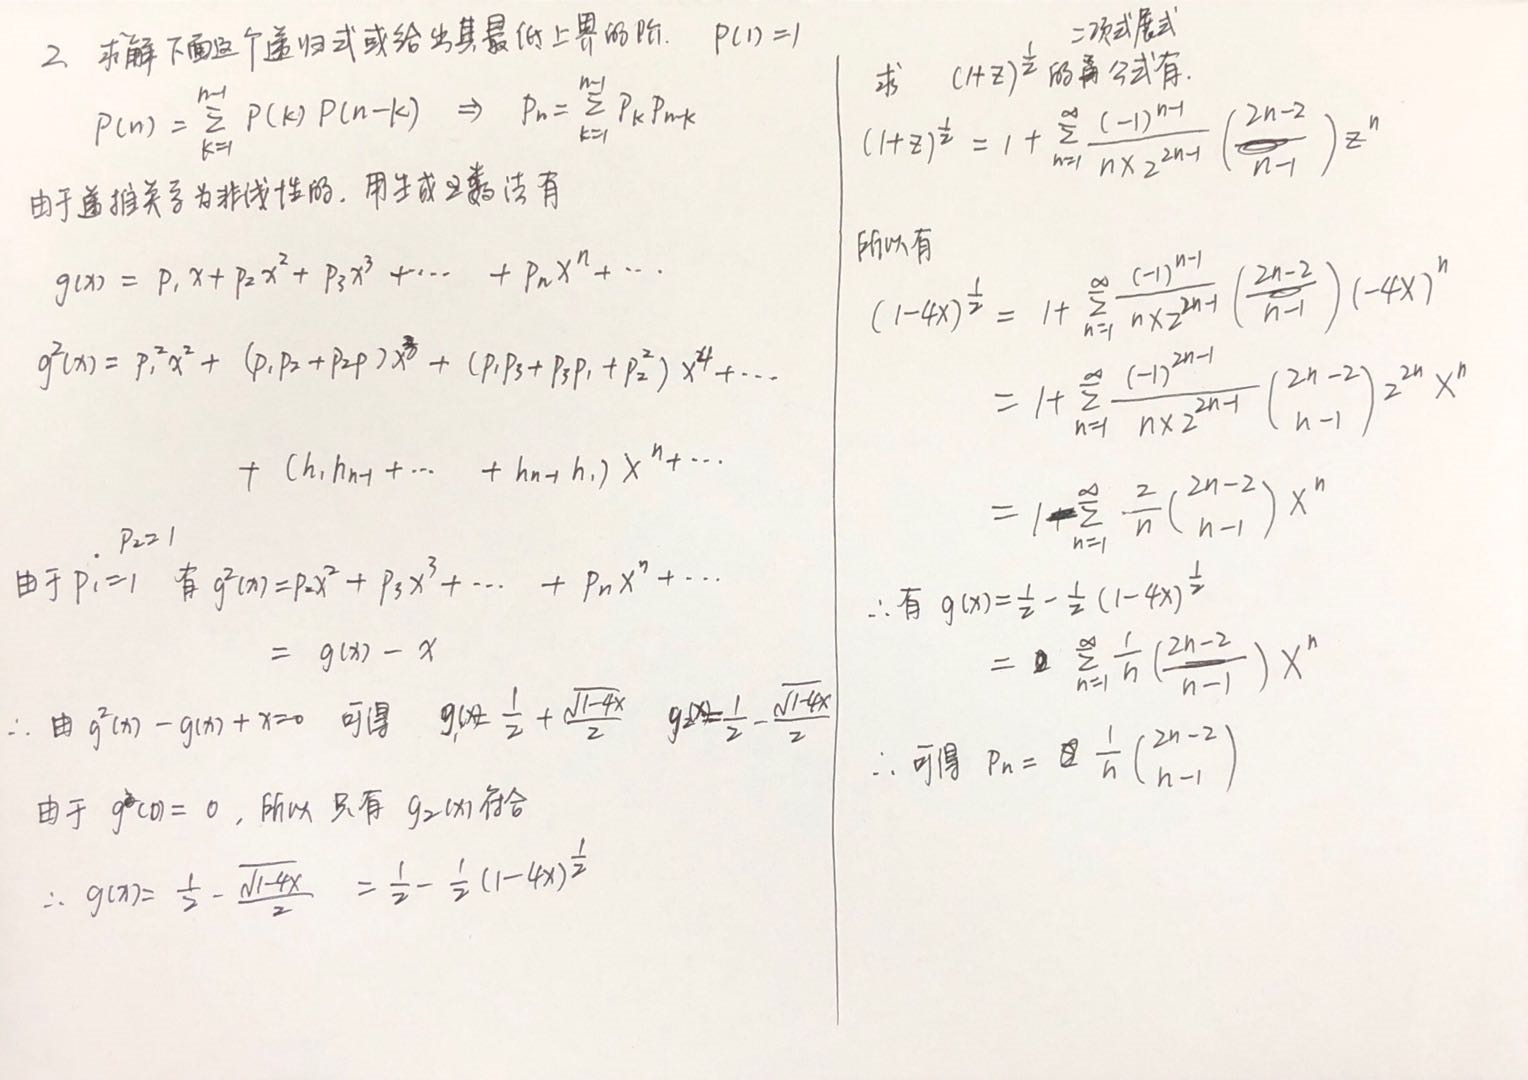 2、求解下面这个递归式或给出其最低上界的阶. P(1)=1
P(n) = \sum_{k=1}^{n-1} P(k) P(n-k) ⇒ P_n = \sum_{k=1}^{n-1} P_k P_{n-k}
由于递推关系为非线性的. 用生成函数法有
g(x) = P_1 x + P_2 x^2 + P_3 x^3 + ··· + P_n x^n + ···
g^2(x) = P_1^2 x^2 + (P_1 P_2 + P_2 P) x^3 + (P_1 P_3 + P_3 P_1 + P_2^2) x^4 + ···
+ (h_1 h_{n-1} + ··· + h_{n-1} h_1) x^n + ···
P_2=1
由于 P_1=1 有 g^2(x) = P_2 x^2 + P_3 x^3 + ··· + P_n x^n + ···
= g(x) - x
∴ 由 g^2(x) - g(x) + x=0 可得 g_1(x)= \frac{1}{2} + \frac{\sqrt{1-4x}}{2} g_2(x)= \frac{1}{2} - \frac{\sqrt{1-4x}}{2}
由于 g(0) = 0, 所以只有 g_2(x) 符合
∴ g(x) = \frac{1}{2} - \frac{\sqrt{1-4x}}{2} = \frac{1}{2} - \frac{1}{2} (1-4x)^{\frac{1}{2}}
二项式展式
求 (1+z)^{\frac{1}{2}} 的公式有.
(1+z)^{\frac{1}{2}} = 1 + \sum_{n=1}^{∞} \frac{(-1)^{n-1}}{n×2^{2n-1}} \binom{2n-2}{n-1} z^n
所以有
(1-4x)^{\frac{1}{2}} = 1 + \sum_{n=1}^{∞} \frac{(-1)^{n-1}}{n×2^{2n-1}} \binom{2n-2}{n-1} (-4x)^n
= 1 + \sum_{n=1}^{∞} \frac{(-1)^{2n-1}}{n×2^{2n-1}} \binom{2n-2}{n-1} 2^{2n} x^n
= 1 - \sum_{n=1}^{∞} \frac{2}{n} \binom{2n-2}{n-1} x^n
∴ 有 g(x) = \frac{1}{2} - \frac{1}{2} (1-4x)^{\frac{1}{2}}
= \sum_{n=1}^{∞} \frac{1}{n} \binom{2n-2}{n-1} x^n
∴ 可得 P_n = \frac{1}{n} \binom{2n-2}{n-1}